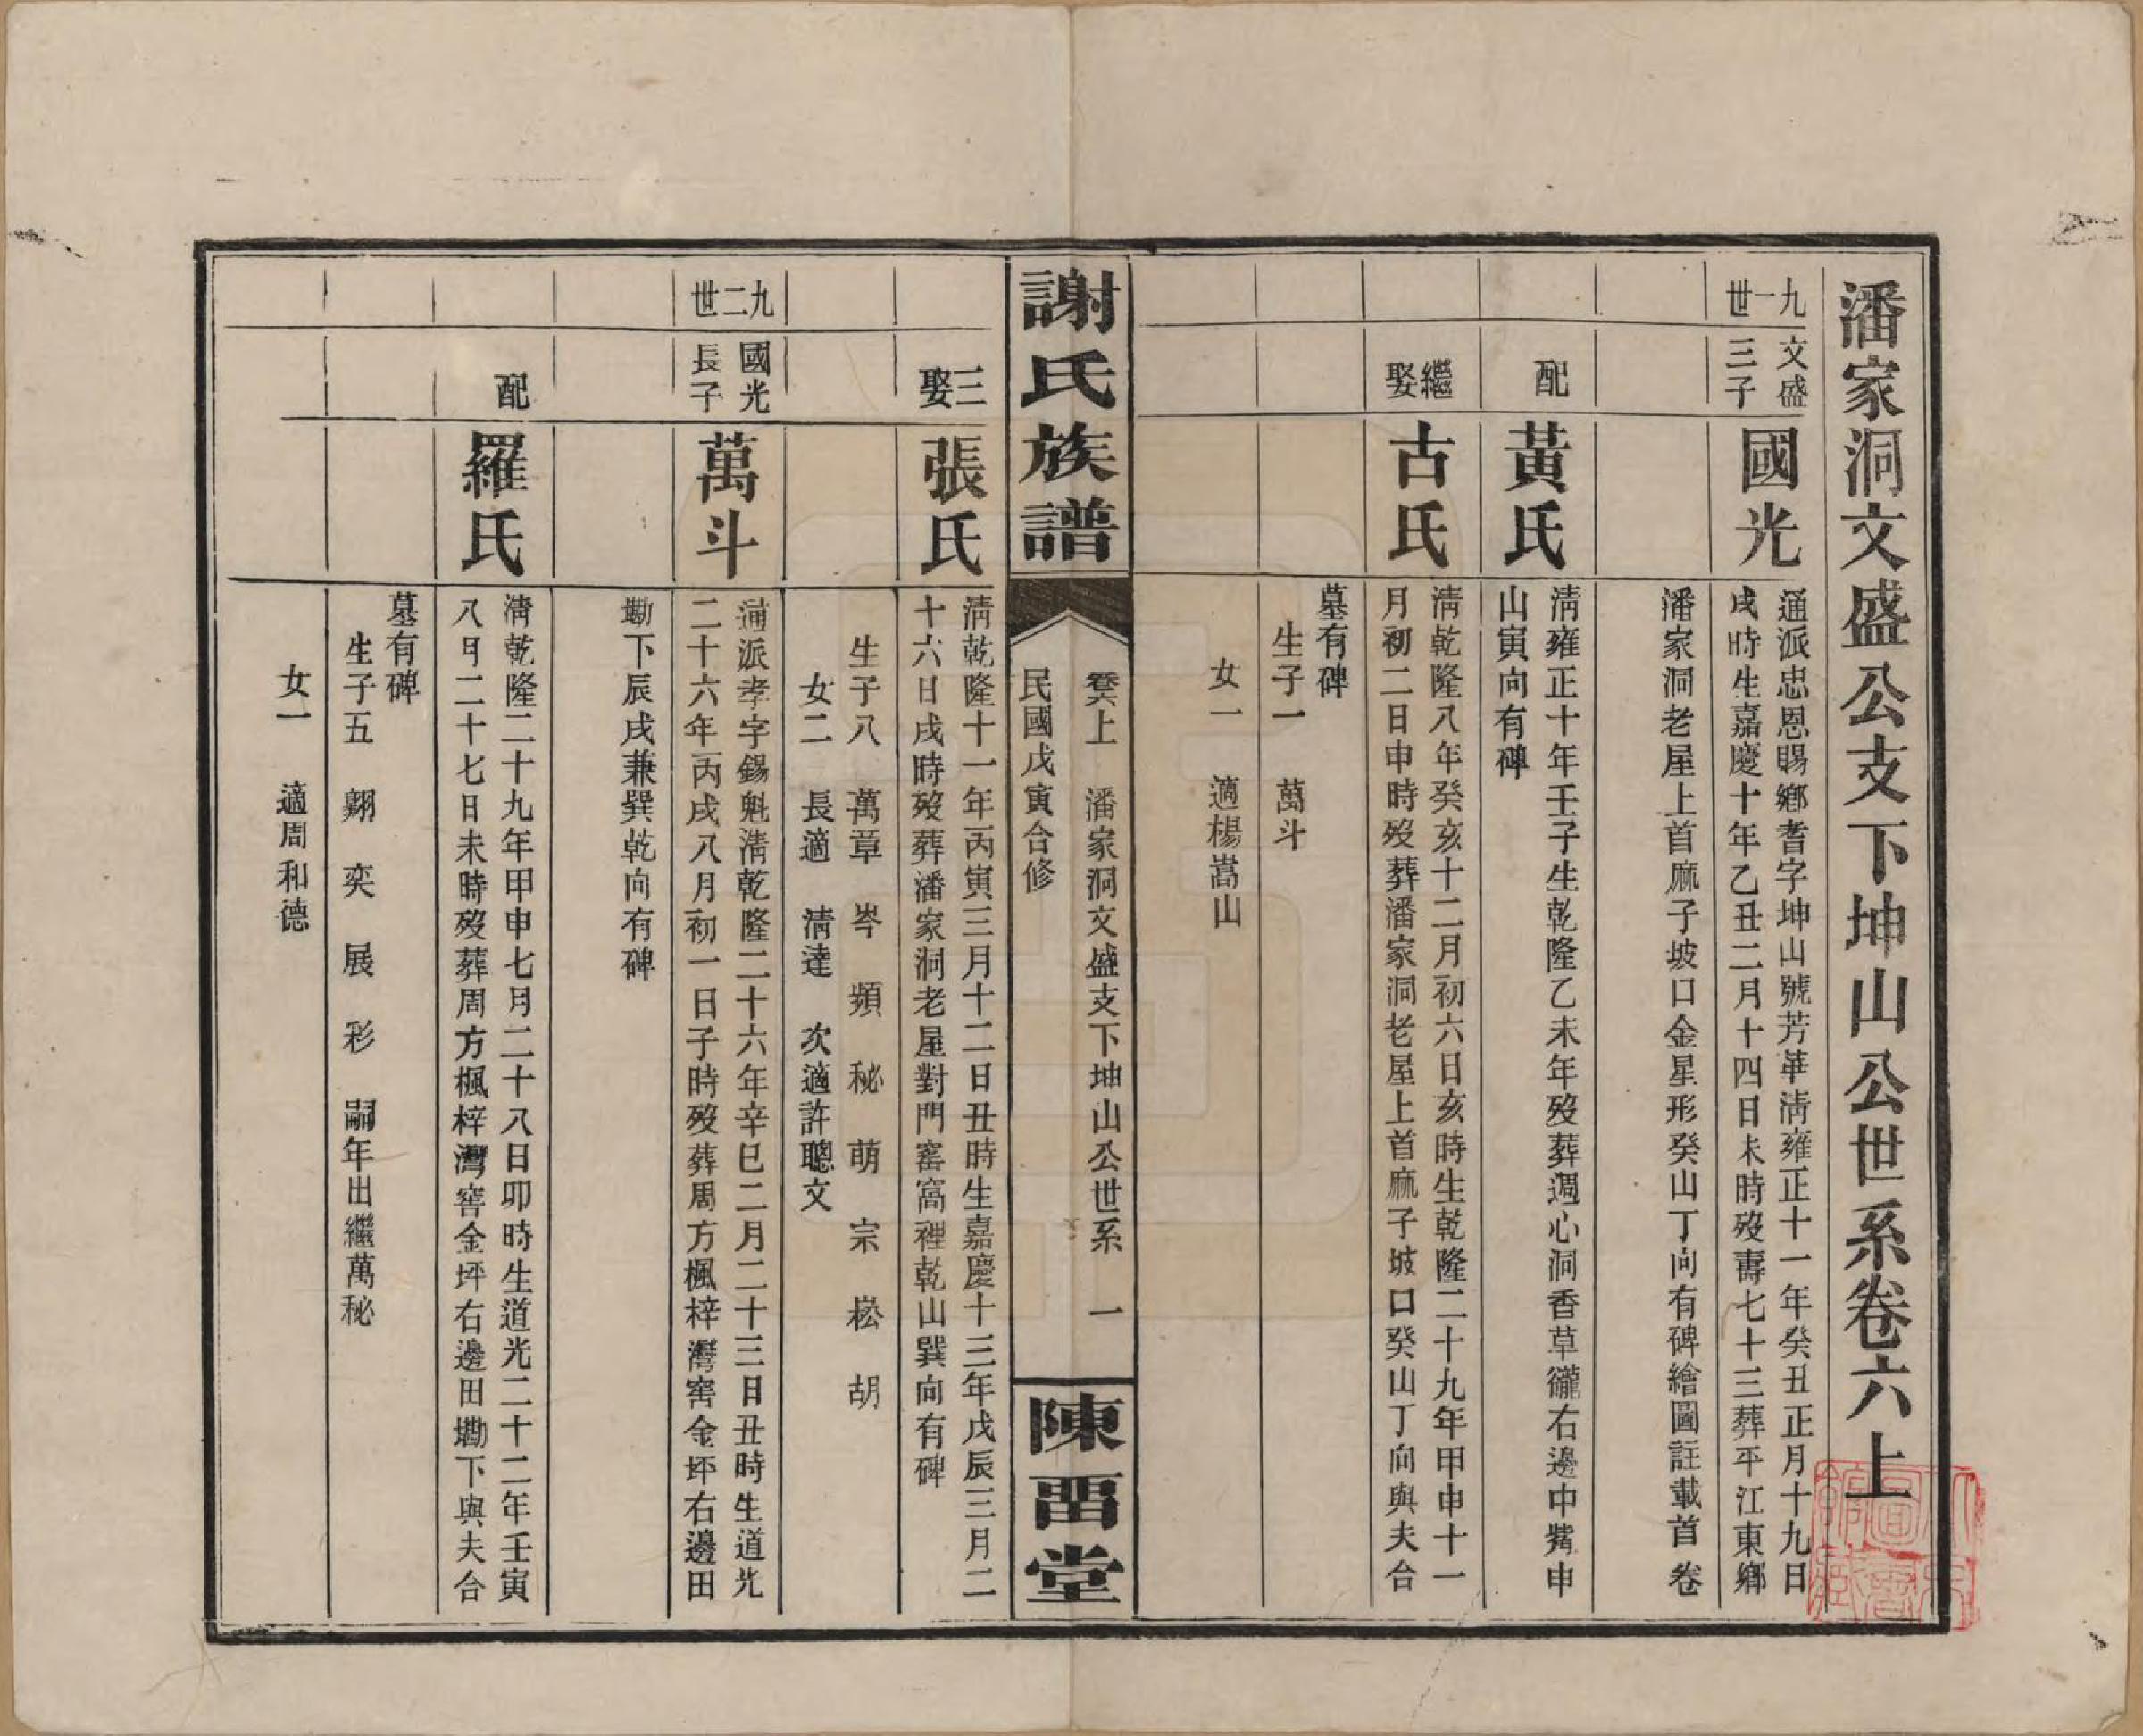 潘家洞文盛公支下坤山公世系卷六上
九一世
文盛
三子
國光
通派忠恩賜鄉耆字坤山號芳華清雍正十一年癸丑正月十九日
戌時生嘉慶十年乙丑二月十四日未時歿壽七十三葬平江東鄉
潘家洞老屋上首麻子坡口金星形癸山丁向有碑繪圖註載首卷
配
黃氏
清雍正十年壬子生乾隆乙未年歿葬週心洞香草右邊中嘴申
山寅向有碑
繼娶
古氏
清乾隆八年癸亥十二月初六日亥時生乾隆二十九年甲申十一
月初二日申時歿葬潘家洞老屋上首麻子坡口癸山丁向與夫合
墓有碑
生子一 萬斗
女一 適楊嵩山
謝氏族譜
卷六上 潘家洞文盛支下坤山公世系 一
民國戊寅合修
陳留堂
三娶
張氏
清乾隆十一年丙寅三月十二日丑時生嘉慶十三年戊辰三月二
十六日戌時歿葬潘家洞老屋對門窰窩裡乾山巽向有碑
生子八 萬章 岑 頻 秘 萌 宗 崧 胡
女二 長適 清達 次適許聰文
九二世
國光
長子
萬斗
通派孝字錫魁清乾隆二十六年辛巳二月二十三日丑時生道光
二十六年丙戌八月初一日子時歿葬周方楓梓灣窖金坪右邊田
墈下辰戌兼巽乾向有碑
配
羅氏
清乾隆二十九年甲申七月二十八日卯時生道光二十二年壬寅
八月二十七日未時歿葬周方楓梓灣窖金坪右邊田墈下與夫合
墓有碑
生子五 翺 奕 展 彩 嗣年出繼萬秘
女一 適周和德